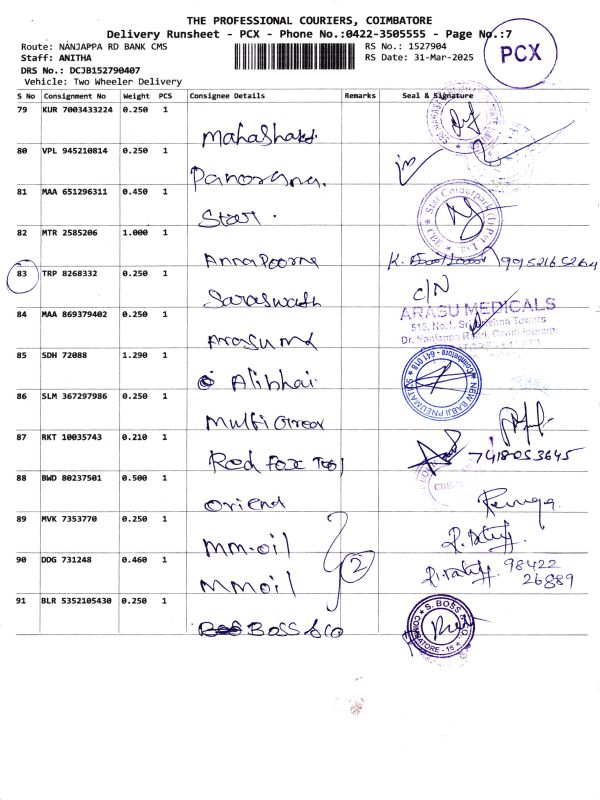 THE PROFESSIONAL COURIERS, COIMBATORE
Delivery Runsheet - PCX - Phone No.:0422-3505555 - Page No.:7
Route: NANJAPPA RD BANK CMS
RS No.: 1527904
PCX
Staff: ANITHA
RS Date: 31-Mar-2025
DRS No.: DCJB152790407
Vehicle: Two Wheeler Delivery
S No Consignment No Weight PCS Consignee Details Remarks Seal & Signature
79 KUR 7003433224 0.250 1
80 VPL 945210814 0.250 1 Panorama.
81 MAA 651296311 0.450 1 Star.
82 MTR 2585206 1.000 1 Annapoorna K. 9952165264
83 TRP 8268332 0.250 1 Saraswath C/N
84 MAA 869379402 0.250 1 Arasu Md ARASU MEDICALS
85 SDH 72088 1.290 1 Alibhai NEW BABJI PNEUMATICS
86 SLM 367297986 0.250 1 Multi Green
87 RKT 10035743 0.210 1 Red Fox 7418053645
88 BWD 80237501 0.500 1 Oriend Renuga.
89 MVK 7353770 0.250 1 MM-oil
90 DDG 731248 0.460 1 MMoil 2 98422
26889
91 BLR 5352105430 0.250 1 BOSS &co S. BOSS & CO. COIMBATORE - 18